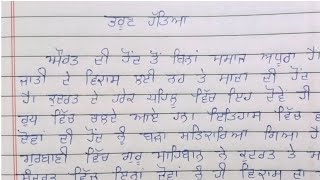 ਭਰੂਣ ਹੱਤਿਆ
ਔਰਤ ਦੀ ਹੋਂਦ ਤੋਂ ਬਿਨਾਂ ਸਮਾਜ ਅਧੂਰਾ ਹੈ।
ਜਾਤੀ ਦੇ ਵਿਕਾਸ ਲਈ ਨਰ ਤੇ ਮਾਦਾ ਦੀ ਹੋਂਦ
ਹੈ। ਕੁਦਰਤ ਦੇ ਹਰੇਕ ਪਹਿਲੂ ਵਿੱਚ ਇਹ ਦੋਵੇਂ ਹੀ
ਰੂਪ ਵਿੱਚ ਚਲਦੇ ਆਏ ਹਨ। ਇਤਿਹਾਸ ਵਿੱਚ ਵ
ਦੋਵਾਂ ਦੀ ਹੋਂਦ ਨੂੰ ਬੜਾ ਸਤਿਕਾਰਿਆ ਗਿਆ ਹੈ
ਗੁਰਬਾਣੀ ਵਿੱਚ ਗੁਰੂ ਸਾਹਿਬਾਨ ਨੇ ਕੁਦਰਤ ਤੇ ਮ
ਵਿੱਚ ਇਨ੍ਹਾਂ ਦੋਵਾਂ ਨੂੰ ਹੀ ਵਿਕਾਸ ਦਾ